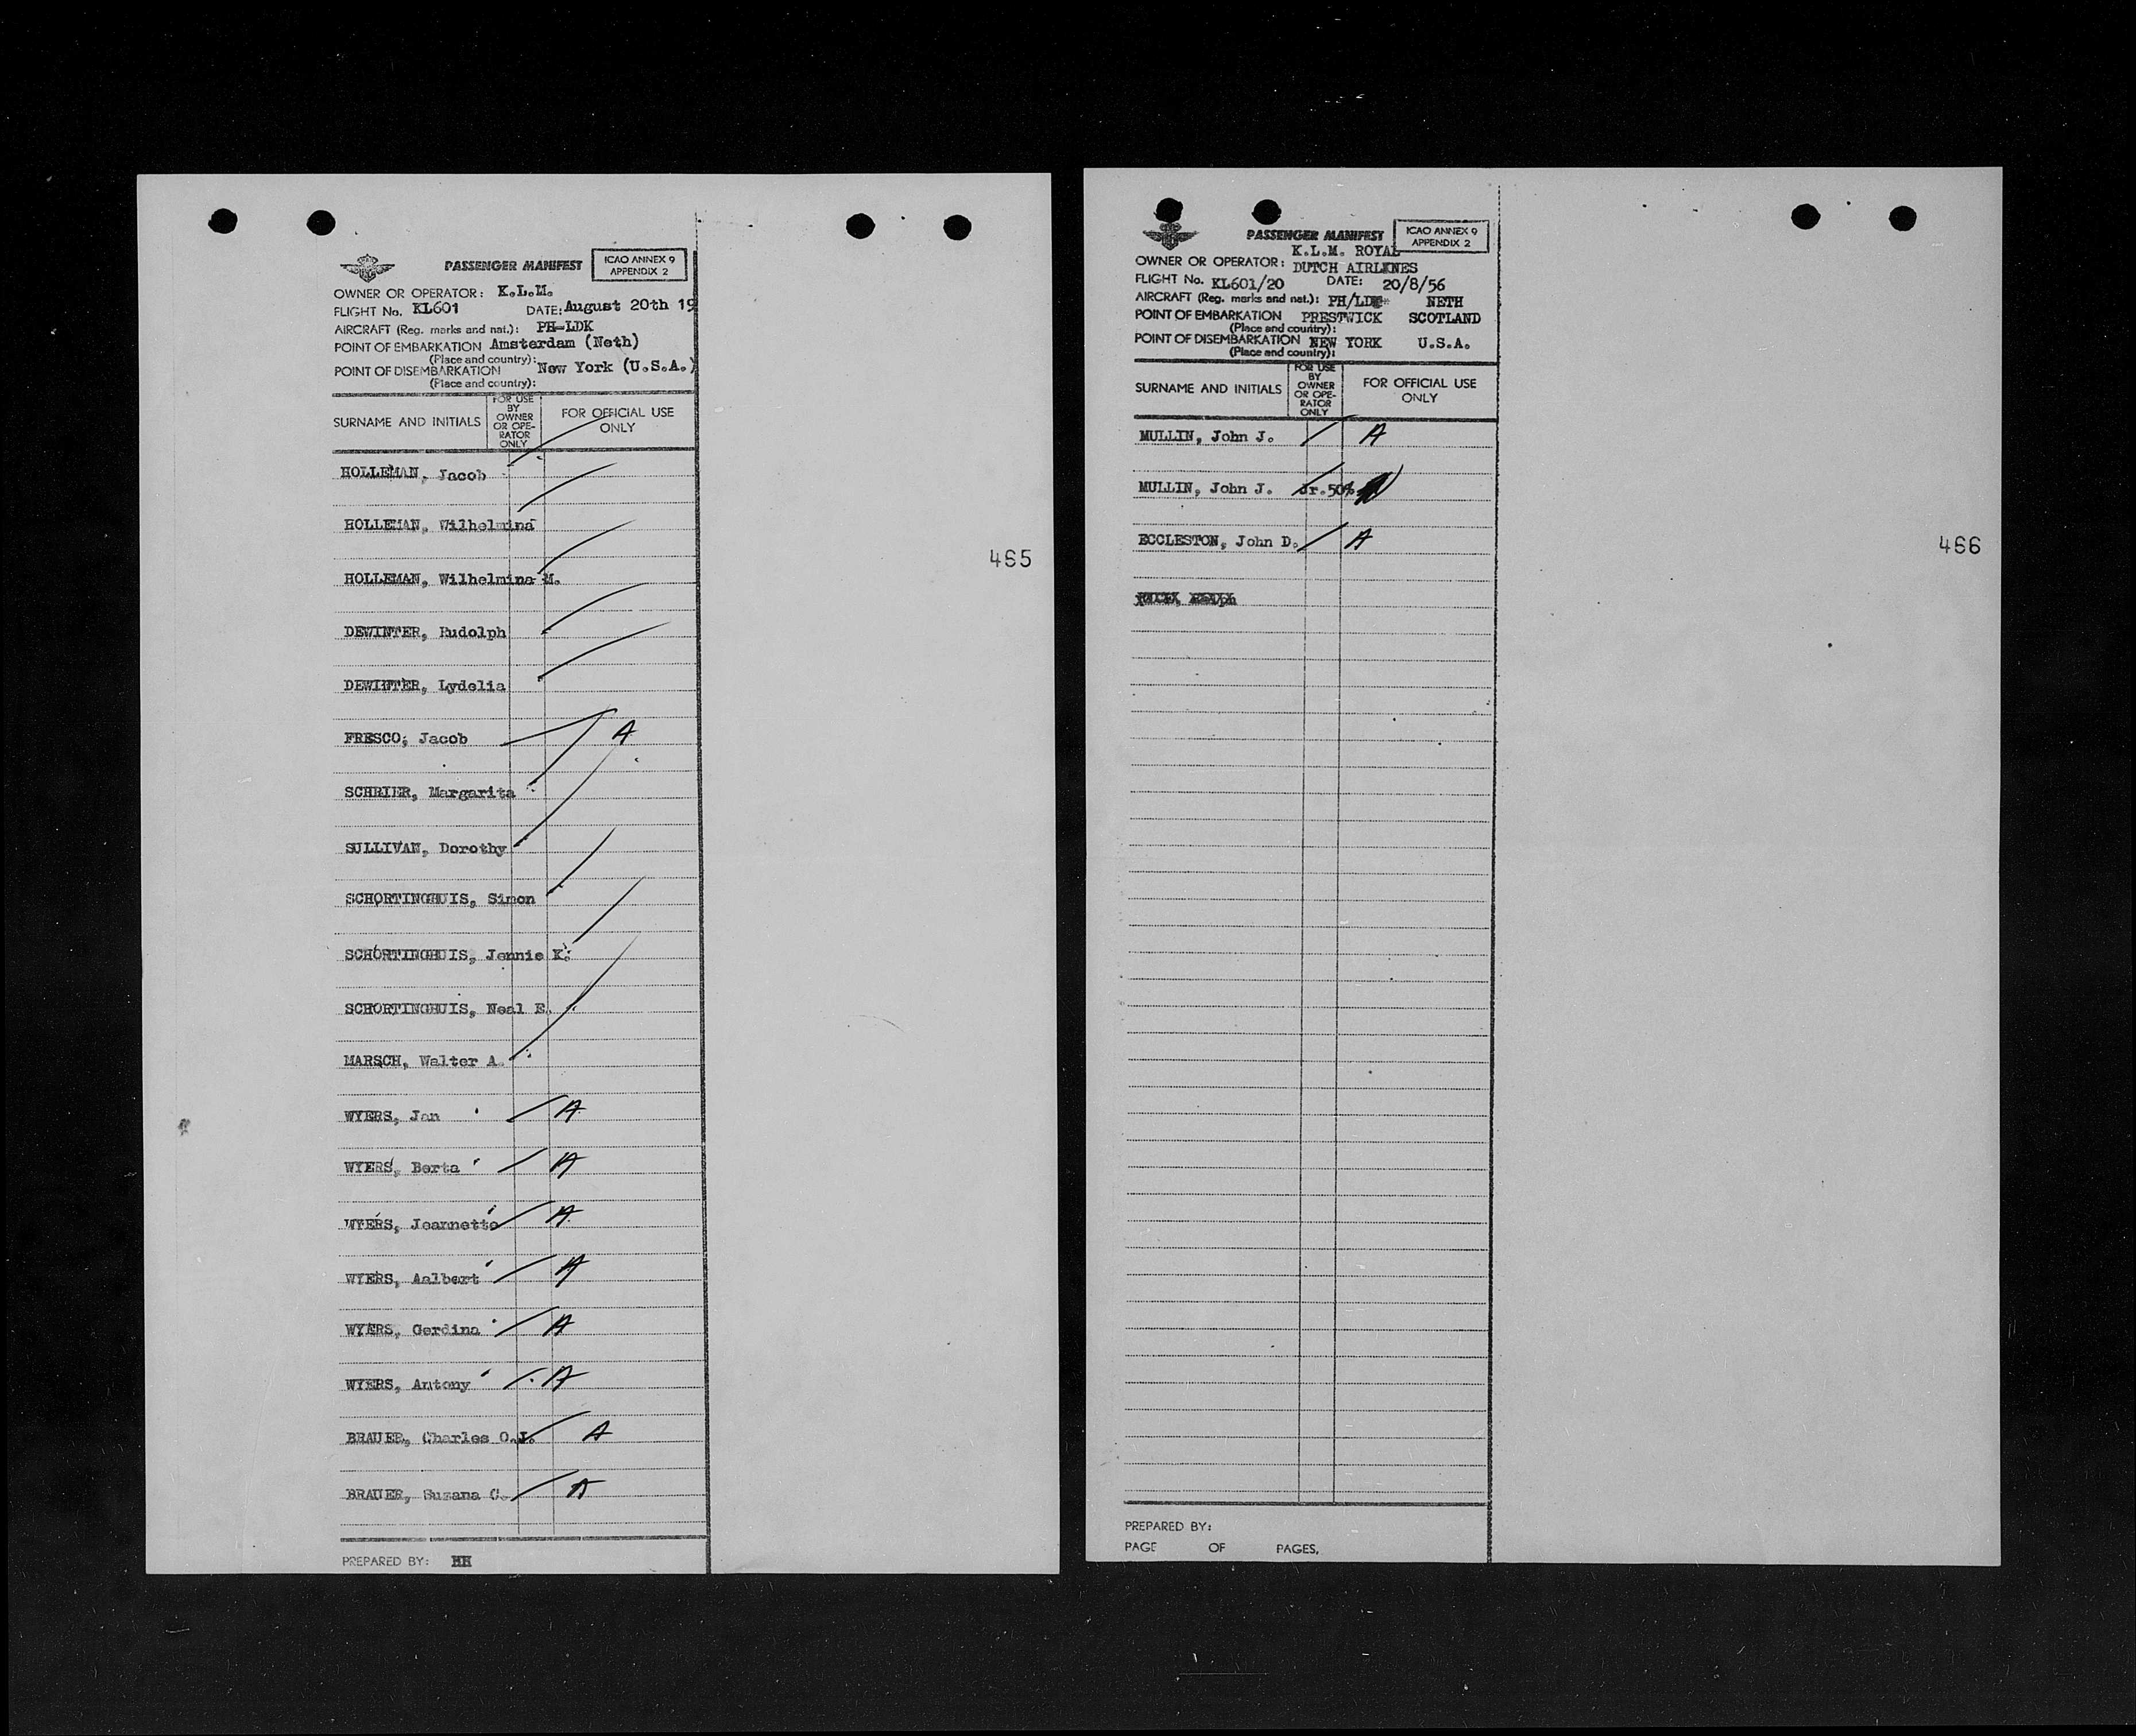 PASSENGER MANIFEST
ICAO ANNEX 9
APPENDIX 2
OWNER OR OPERATOR: K.L.M.
FLIGHT No. KL601 DATE: August 20th 19
AIRCRAFT (Reg. marks and nat.): PH-LDK
POINT OF EMBARKATION Amsterdam (Neth)
(Place and country):
POINT OF DISEMBARKATION New York (U.S.A.)
(Place and country):
SURNAME AND INITIALS
FOR USE
BY
OWNER
OR OPE-
RATOR
ONLY
FOR OFFICIAL USE
ONLY
HOLLEMAN, Jacob
HOLLEMAN, Wilhelmina
HOLLEMAN, Wilhelmina M.
DEWINTER, Rudolph
DEWINTER, Lydelia
FRESCO, Jacob A
SCHRIER, Margarita
SULLIVAN, Dorothy
SCHORTINGHUIS, Simon
SCHORTINGHUIS, Jennie K.
SCHORTINGHUIS, Neal E.
MARSCH, Walter A.
WYERS, Jan A
WYERS, Berta A
WYERS, Jeannette A
WYERS, Aalbert A
WYERS, Gerdina A
WYERS, Antony A
BRAUER, Charles O.J. A
BRAUER, Suzana C. A
PREPARED BY: HH
465
PASSENGER MANIFEST
ICAO ANNEX 9
APPENDIX 2
K.L.M. ROYAL
OWNER OR OPERATOR: DUTCH AIRLINES
FLIGHT No. KL601/20 DATE: 20/8/56
AIRCRAFT (Reg. marks and nat.): PH/LDK NETH
POINT OF EMBARKATION PRESTWICK SCOTLAND
(Place and country):
POINT OF DISEMBARKATION NEW YORK U.S.A.
(Place and country):
SURNAME AND INITIALS
FOR USE
BY
OWNER
OR OPE-
RATOR
ONLY
FOR OFFICIAL USE
ONLY
MULLIN, John J. A
MULLIN, John J. Jr. 50%
ECCLESTON, John D. A
PREPARED BY:
PAGE OF PAGES.
466